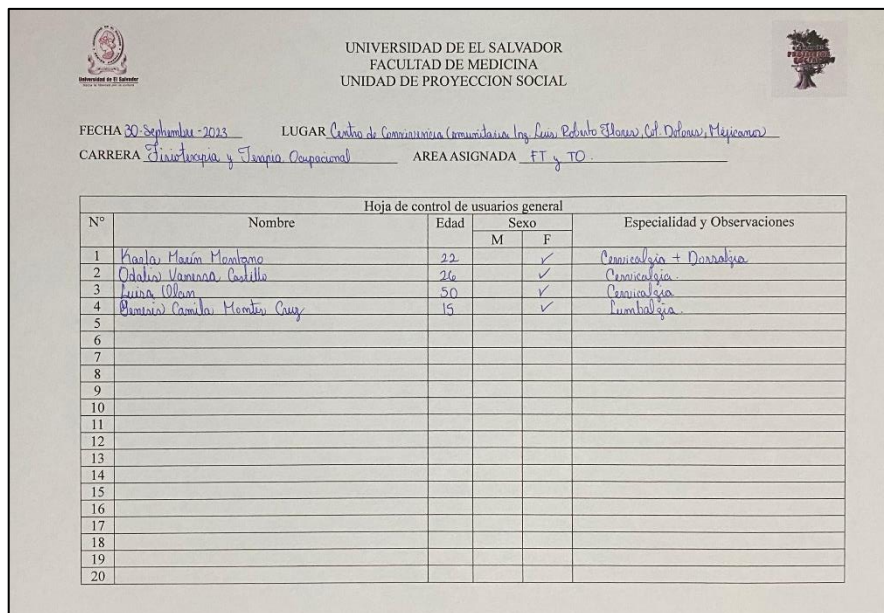 UNIVERSIDAD DE EL SALVADOR
FACULTAD DE MEDICINA
UNIDAD DE PROYECCION SOCIAL
Universidad de El Salvador
FECHA 30-Septiembre-2023 LUGAR Centro de Convivencia Comunitaria Ing. Luis Roberto Flores, Col. Dolores, Mejicanos
CARRERA Fisioterapia y Terapia Ocupacional AREA ASIGNADA FT y TO.
Hoja de control de usuarios general
N° Nombre Edad Sexo Especialidad y Observaciones
M F
1 Karla Marín Montano 22 ✓ Cervicalgia + Dorsalgia
2 Odalis Vanessa Castillo 26 ✓ Cervicalgia.
3 Luisa 50 ✓ Cervicalgia
4 Genesis Camila Montes Cruz 15 ✓ Lumbalgia.
5
6
7
8
9
10
11
12
13
14
15
16
17
18
19
20